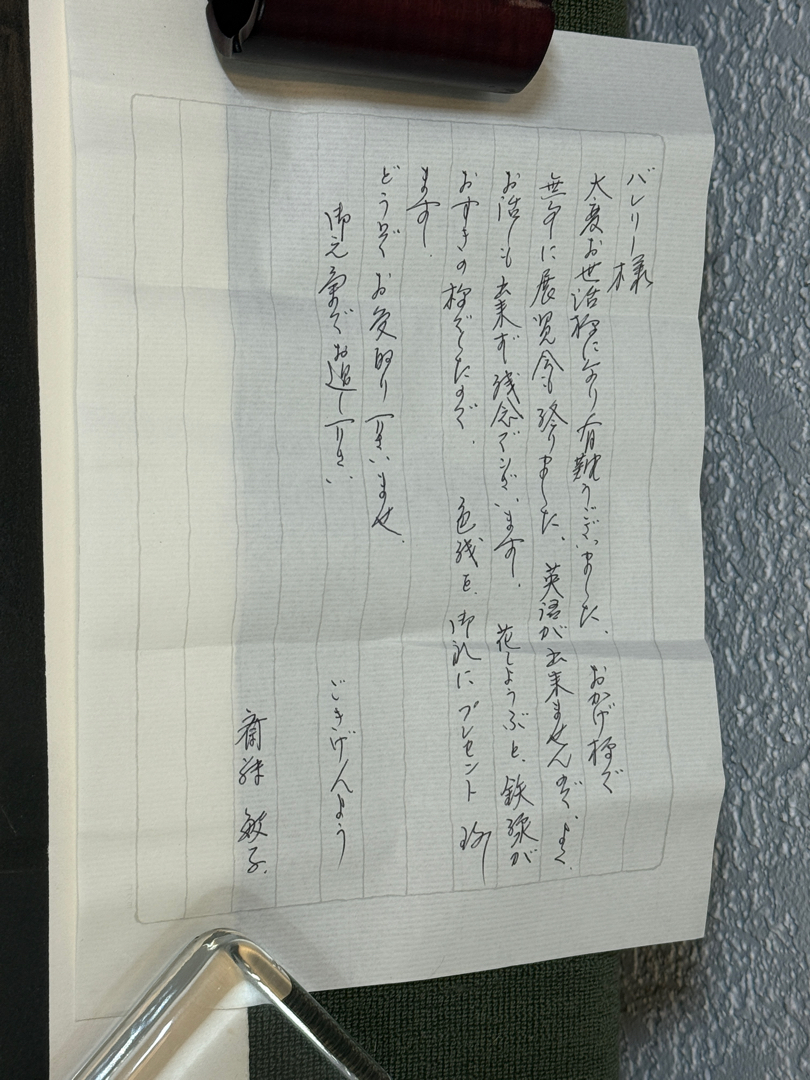 バレリー様
大変お世話様になり有難うございました。おかげ様で
無事に展覧会も終りました。英語が出来ませんので、よく
お話しも出来ず残念でございます。花しょうぶと、鉄線が
おすきの様でしたので、色紙を、御礼にプレゼント致し
ます。
どうぞお受取り下さいませ。
御元気でお過し下さい、ごきげんよう
斎藤 敏子